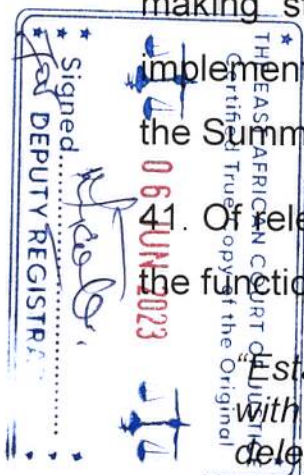 making s
implement
the Summ
41. Of rele
the functio
"Esta
with
dele
THE EAST AFRICAN COURT OF JUSTICE
Certified True Copy of the Original
06 JUN 2023
Signed
For DEPUTY REGISTRA